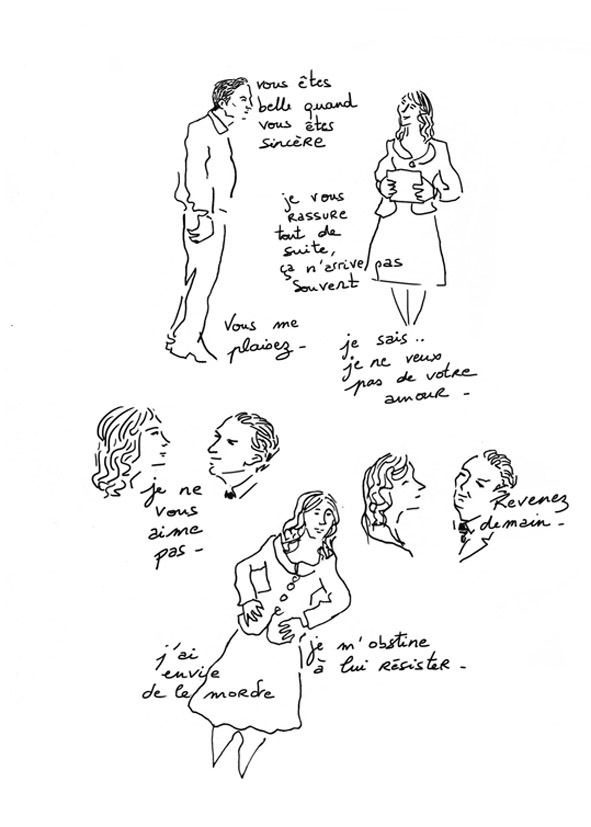 vous êtes
belle quand
vous êtes
sincère
je vous
rassure
tout de
suite,
ça n'arrive pas
souvent
Vous me
plaisez -
je sais..
je ne veux
pas de votre
amour -
je ne
vous
aime
pas -
Revenez
demain -
j'ai
envie
de le mordre
je m'obstine
à lui résister -